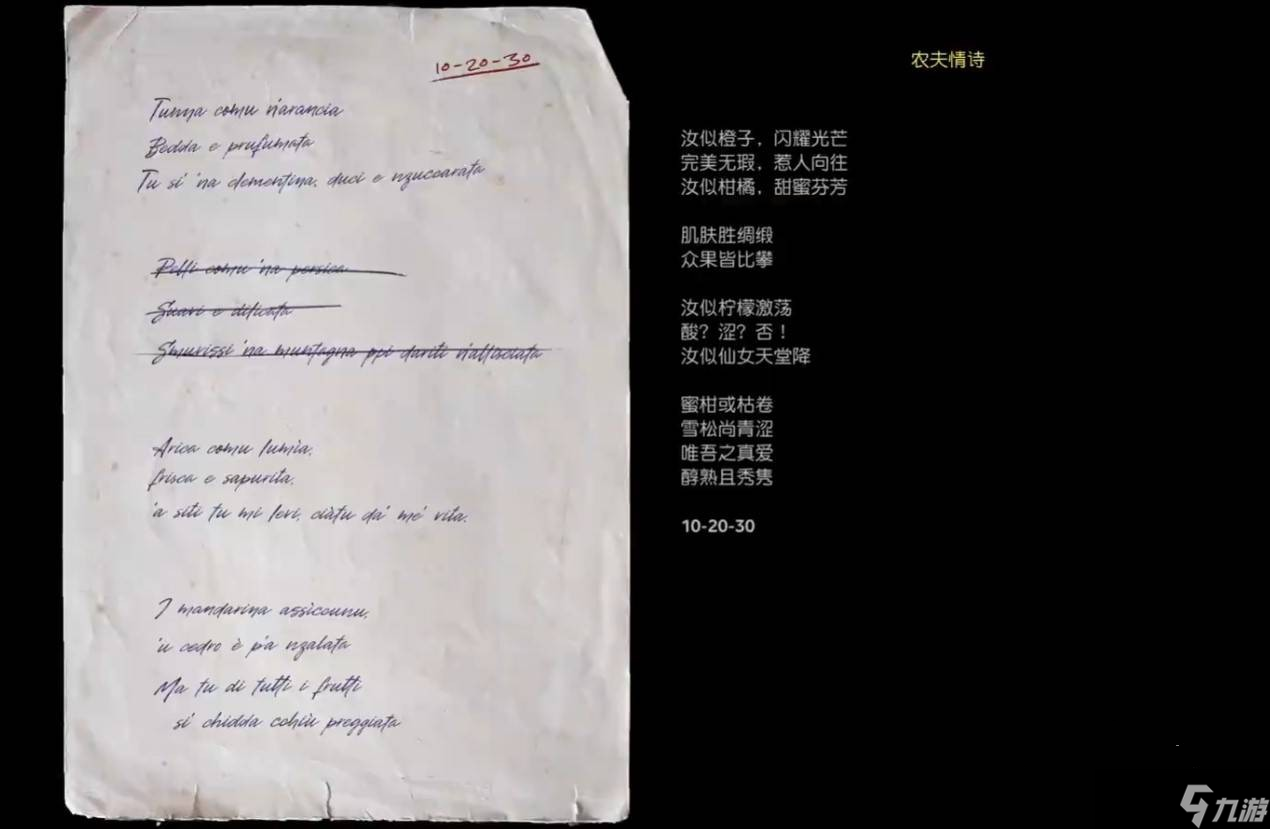 10-20-30
Tunna comu n'arancia
Bedda e prufumata
Tu si 'na clementina, duci e nzuccarata
Pelli comu 'na persica
Suavi e dilicata
Smurissi 'na muntagna ppi dariti n'allisciata
Arica comu lumìa,
frisca e sapurita,
'a siti tu mi levi, ciàtu da' me' vita.
I mandarina assiccunu,
'u cedro è p'a nzalata
Ma tu di tutti i frutti
si' chidda cchiù preggiata
农夫情诗
汝似橙子，闪耀光芒
完美无瑕，惹人向往
汝似柑橘，甜蜜芬芳
肌肤胜绸缎
众果皆比攀
汝似柠檬激荡
酸？涩？否！
汝似仙女天堂降
蜜柑或枯卷
雪松尚青涩
唯吾之真爱
醇熟且秀隽
10-20-30
九游